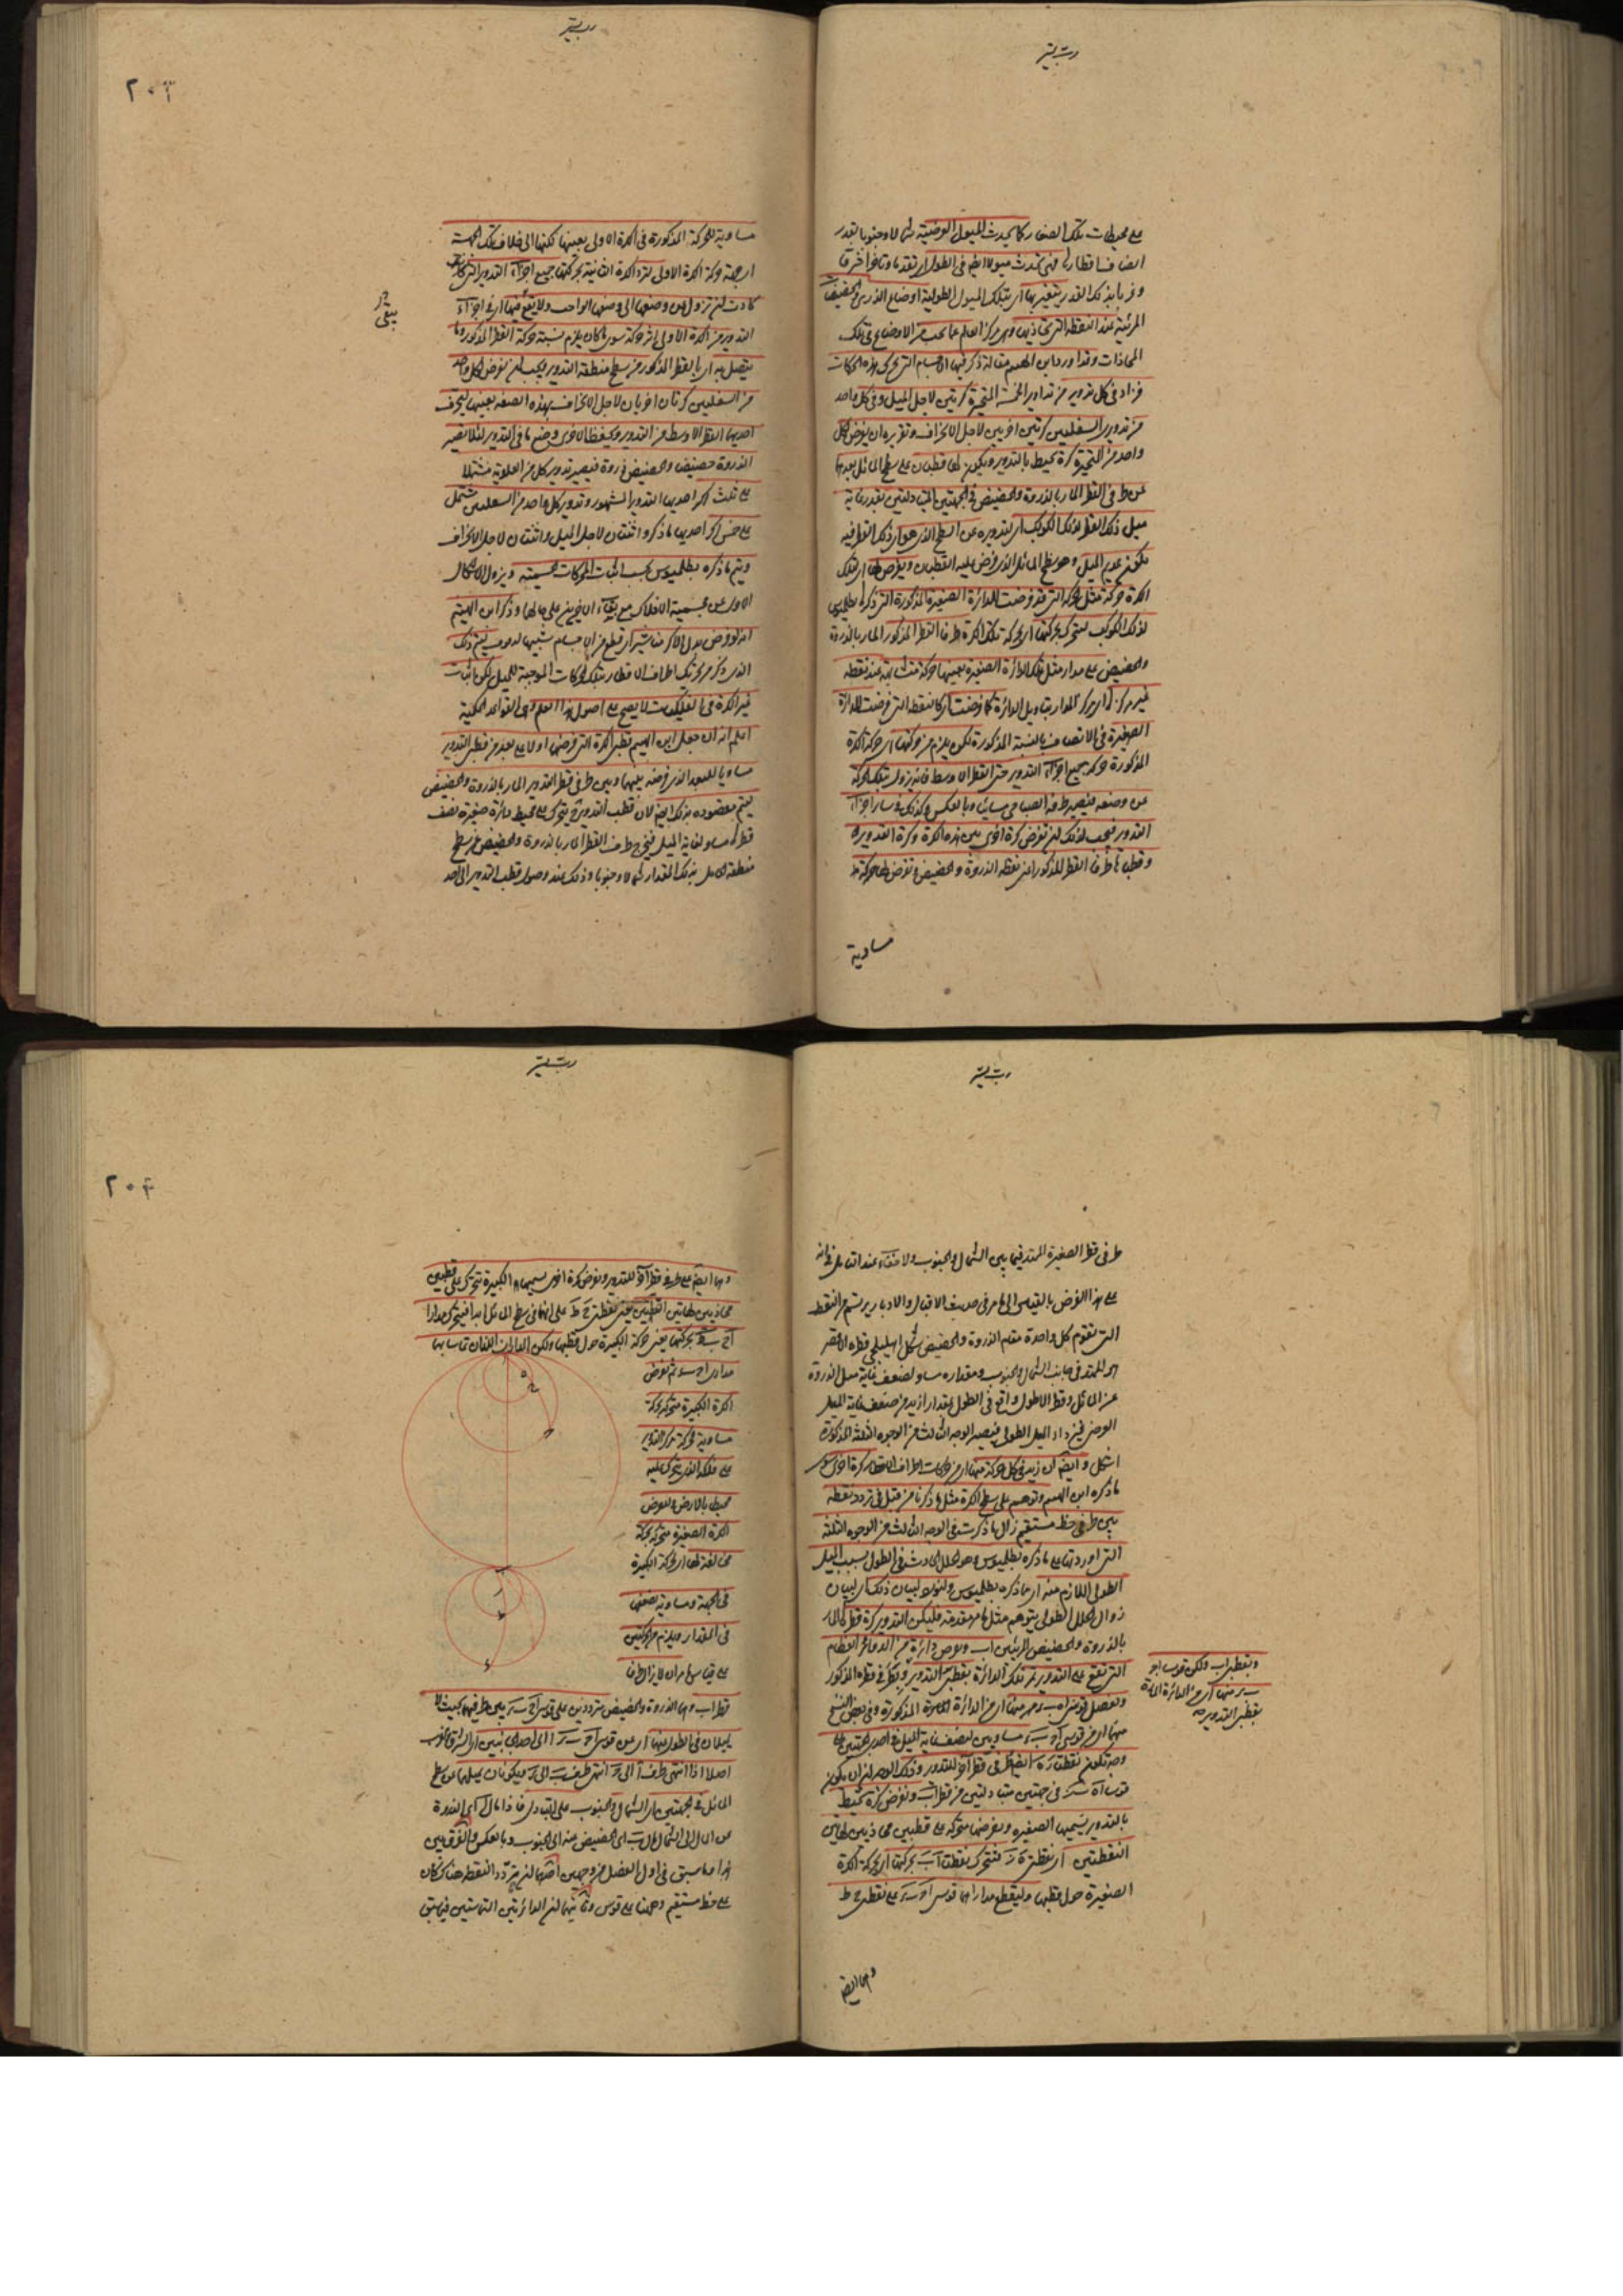 على محيطات تلك الصغار كما يحدث الميول العرضية شمالا وجنوبا بقدر
انصاف اقطارها فهى تحدث ميولا ايضا فى الطول اى تقدما وتاخرا شرقا
وغربا بذلك القدر يتغير بها اى بتلك الميول الطولية اوضاع الذرى والحضيضات
المرئية عند النقطة التى تحاذيها وهى مركز العالم عما يجب من الاوضاع فى تلك
المحاذات وقد اورد ابن الهيثم مقالة ذكر فيها الاجسام التى تحرك هذه الحركات
فزاد فى كل تدوير من تداوير الخمسة المتحيرة كرتين لاجل الميل وفى كل واحد
من تدويرى السفليين كرتين اخريين لاجل الانحراف وتقريره ان يفرض لكل
واحد من المتحيرة كرة تحيط بالتدوير ويكون لها قطبان على سطح المائل بعدهما
عن طرفى القطر المار بالذروة والحضيض فى الجهتين المتبادلتين بقدر غاية
ميل ذلك القطر لذلك الكوكب اى لتدويره عن السطح الذى هو اى ذلك القطر فيه
يكون عديم الميل وهو سطح المائل الذى فرض عليه القطبان ويفرض لها اى لتلك
الكرة حركة مثل الحركة التى قد فرضت للدائرة الصغيرة المذكورة التى ذكرها بطلميوس
لذلك الكوكب ليتحرك بحركتها اى بحركة تلك الكرة طرفا القطر المذكور المار بالذروة
والحضيض على مدار مثل تلك الدائرة الصغيرة بعينها حركة متشابهة عند نقطة
غير مركزه اى مركز المدار بتاويل الدائرة كما فرضت اى كالنقطة التى فرضت للدائرة
الصغيرة فى الاتصاف بالنسبة المذكورة لكن يلزم من حركتها اى حركة الكرة
المذكورة حركة جميع اجزاء التدوير حتى القطر الاوسط فانه يزول بتلك الحركة
عن وضعه فيصير طرفه الصباحى مسائيا وبالعكس وكذلك فى سائر اجزاء
التدوير فيجب لذلك ان تفرض كرة اخرى بين هذه الكرة وكرة التدوير
وقطباها طرفا القطر المذكور اعنى نقطة الذروة والحضيض وتفرض لها حركة
مساوية
مساوية للحركة المذكورة فى الكرة الاولى بعينها لكنها الى خلاف تلك الجهة
اى جهة حركة الكرة الاولى لترد الكرة الثانية بحركتها جميع اجزاء التدوير التى
كادت ان تزول عن وضعها الى وضعها الواجب ولا يقع فيها اى فى اجزاء
التدوير من الكرة الاولى اثر حركة سوى ما كان يلزم نسبة حركة القطر المذكور وما
يتصل به اى بالقطر المذكور من سطح منطقة التدوير ويجب ان نفرض لكل واحد
من السفليين كرتان اخريان لاجل الانحراف بهذه الصفة بعينها ليحرف
احديهما القطر الاوسط من التدوير ويحفظ الاخرى وضع ما فى التدوير لئلا يصير
الذروة حضيضا والحضيض ذروة فيصير تدوير كل من العلوية مشتملا
على ثلث اكر احديها التدوير المشهور وتدوير كل واحد من السفليين يشتمل
على خمس اكر احديها ما ذكر واثنتان لاجل الميل واثنتان لاجل الانحراف
ويتم ما ذكره بطلميوس بحسب اثبات الحركات المجسمة ويزول الاشكال
الاول عن مجسمية الافلاك مع بقاء الاخيرين على حالها وذكر ابن الهيثم
انه لو فرض بدل الاكر مناشير اى قطع من اجسام شبيهة بالدفوف ليتم ذلك
الذى ذكر من تحريك اطراف الاقطار بتلك الحركات الموجبة للميل لكن اثبات
غير الكرة فى الفلكيات لا يصح على اصول هذا العلم وهى القواعد الحكمية
اعلم انه ان جعل ابن الهيثم قطبى الكرة التى فرضها اولا على بعد من قطبى التدوير
مساويا للبعد الذى فرضه بينهما وبين طرفى قطر التدوير المار بالذروة والحضيض
ليتم مقصوده بذلك ايضا لان قطب التدوير ح يتحرك على محيط دائرة صغيرة نصف
قطرها مساو لغاية الميل فيخرج طرف القطر المار بالذروة والحضيض عن سطح
منطقة المائل بذلك المقدار شمالا وجنوبا وذلك عند وصول قطب التدوير الى احد
طرفى قطر الصغيرة الممتد فيما بين الشمال والجنوب ولا خفاء عند التامل فى انه
على هذا الفرض بالقياس الى ما مر فى حديث الاقبال والادبار يرتسم من النقط
التى تقوم كل واحدة مقام الذروة والحضيض شكل اهليلجى قطره الاقصر
هو الممتد فى جانب الشمال والجنوب ومقداره مساو لضعف غاية ميل الذروة
عن المائل وقطره الاطول واقع فى الطول بمقدار ازيد من ضعف غاية الميل
العرضى فيزداد الميل الطولى فيصير الوجه الثالث من الوجوه الثلثة المذكورة
اشكل وايضا ان زيد فى كل حركة منها اى من حركات اطراف الاقطار كرة اخرى سوى
ما ذكره ابن الهيثم وتوهم على سطح الكرة مثل ما ذكرنا من قبل فى تردد نقطة
بين طرفى خط مستقيم زال ما ذكرت فى الوجه الثالث من الوجوه الثلثة
التى اوردتها على ما ذكره بطلميوس وهو الخلل الحادث فى الطول بسبب الميل
الطولى اللازم منه اى مما ذكره بطلميوس ولنورد لبيان ذلك اى لبيان
زوال الخلل الطولى بتوهم مثل ما مر مقدمة فليكن التدوير كرة قطرها المار
بالذروة والحضيض المرئيين اب ونفرض دائرة من الدوائر العظام
التى تقع على التدوير تمر تلك الدائرة بقطبى التدوير وبطرفى قطره المذكور
ونفصل قوسى اه ب ر منها اى من الدائرة المارة المذكورة وفى بعض النسخ
وبقطبى اب وليكن قوسا اح
ب ر منها اى من الدائرة المارة
بقطبى التدوير
بالتدوير نسميها الصغيرة ونفرضها متحركة على قطبين محاذيين لهاتين
النقطتين اى نقطتى ه ر فتتحرك نقطتا اب بحركتها اى بحركة الكرة
الصغيرة حول قطبها وليقطع مداراهما قوسى اح ب ء على نقطتى ح ط
وهما ايضا
وهما ايضا على طرفى قطر اخر للتدوير ونفرض كرة اخرى نسميها الكبيرة تتحرك على قطبين
محاذيين لهاتين النقطتين يعنى نقطتى ح ط على انهما فى سطح المائل ابدا فيتحرك مدارا
مدارى اح ب ء ثم نفرض
الكرة الكبيرة متحركة حركة
مساوية لحركة مركز التدوير
على فلكه الذى يتحرك عليه
محيط بالارض ونفرض
الكرة الصغيرة متحركة حركة
مخالفة لها اى لحركة الكبيرة
فى الجهة ومساوية لضعفها
فى المقدار ويلزم من الحركتين
على قياس ما مر ان لا يزال طرفا
قطر اب وهما الذروة والحضيض مترددين على قوسى اح ب ء بين طرفيهما بحيث لا
يميلان فى الطول عنهما اى عن قوسى اح ب ء الى احدى الجهتين اى الشرق والغرب
اصلا اذا انتهى طرف ا الى ح انتهى طرف ب الى ء فيكونان بميلهما عن سطح
المائل فى الجهتين اى الشمال والجنوب على التبادل فاذا مال ا اى الذروة
عن المائل الى الشمال مال ب اى الحضيض عنه الى الجنوب وبالعكس والفرق بين
هذا وما سبق فى اول الفصل من وجهين احدهما ان تردد النقطة هناك كان
على خط مستقيم وههنا على قوس وثانيهما ان الدائرتين المتماستين فيما سبق